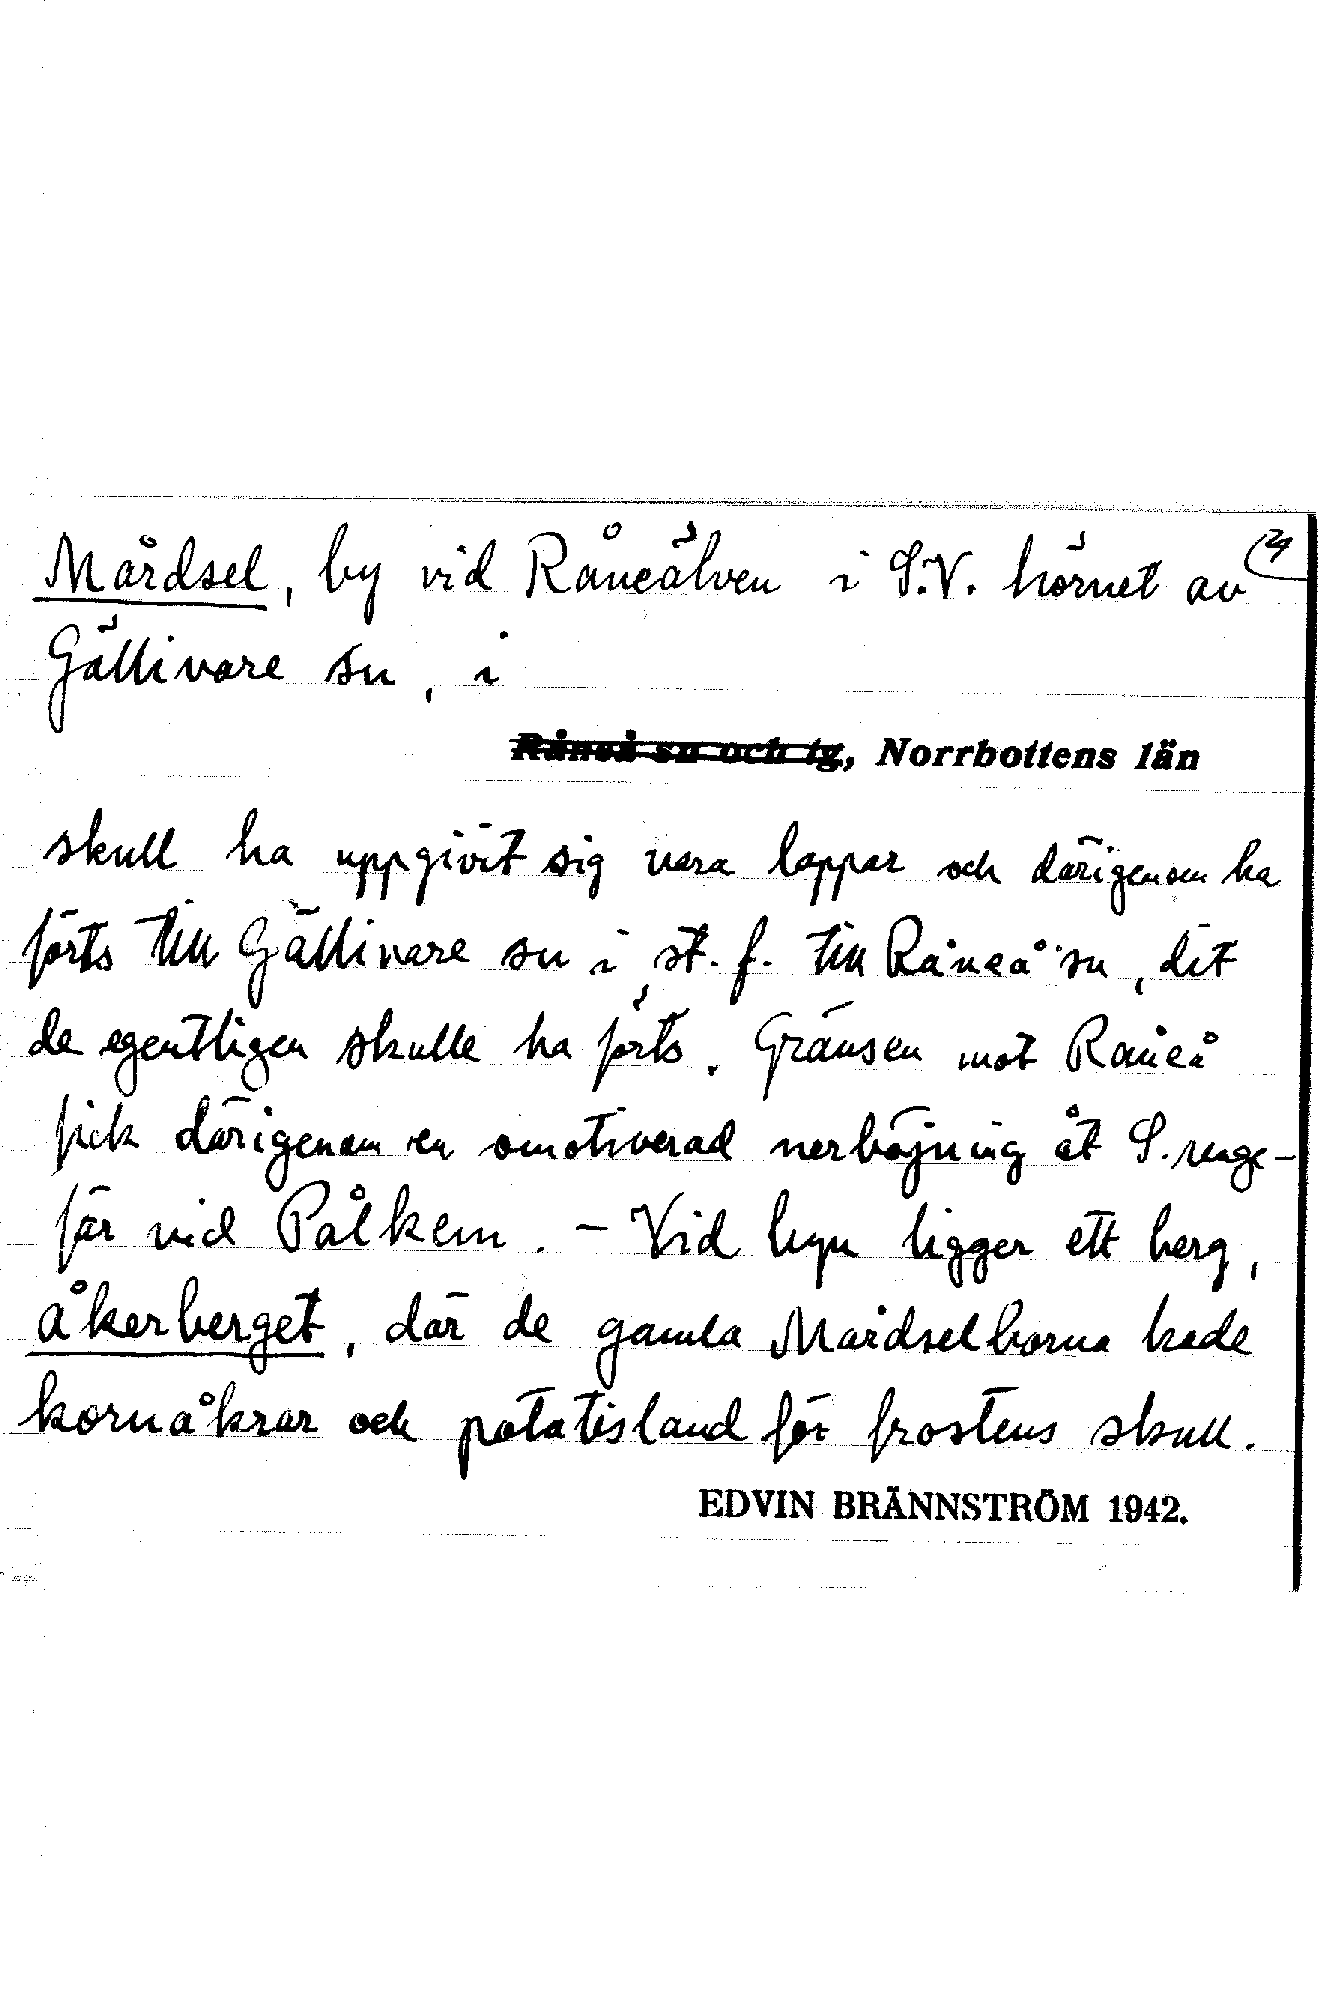 Mårdsel, by vid Råneälven i S.V. hörnet av
Gällivare sn, i
Råneå sn och tg, Norrbottens län
skull ha uppgivit sig vara lappar och därigenom ha
förts till Gällivare sn i st. f. till Råneå sn, dit
de egentligen skulle ha förts. Gränsen mot Råneå
fick därigenom en omotiverad nerböjning åt S. unge-
fär vid Pålkem. – Vid byn ligger ett berg,
Åkerberget, där de gamla Mårdselborna hade
kornåkrar och potatisland för frostens skull.
EDVIN BRÄNNSTRÖM 1942.